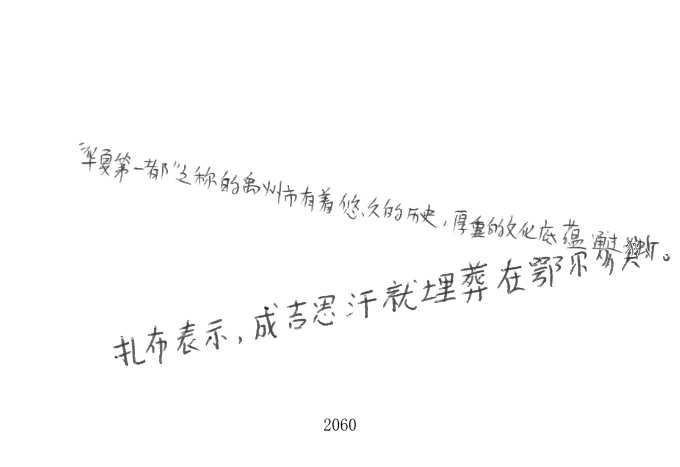 "华夏第一都"之称的禹州市有着悠久的历史,厚重的文化底蕴
扎布表示,成吉思汗就埋葬在鄂尔多斯。
2060